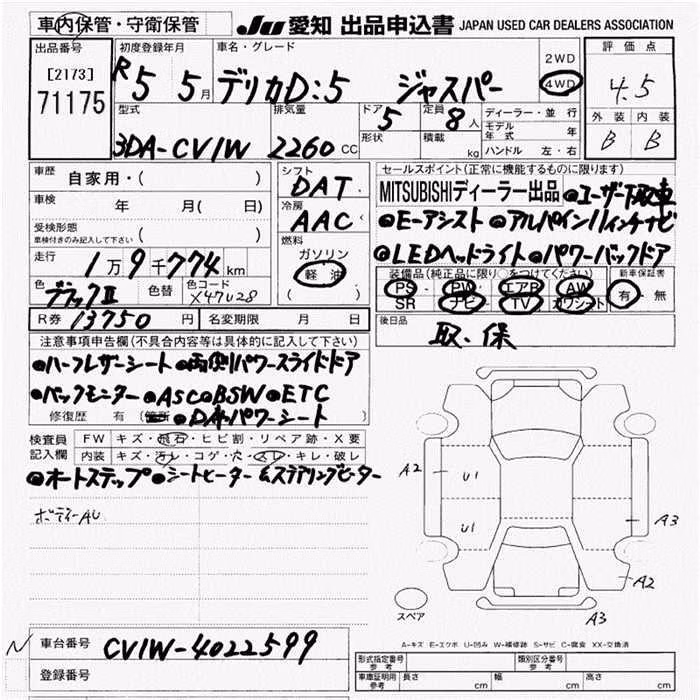 車内保管・守衛保管 JU 愛知 出品申込書 JAPAN USED CAR DEALERS ASSOCIATION
出品番号 初度登録年月 車名・グレード 2WD 4WD 評価点
[2173] 71175 R5 5月 デリカD:5 ジャスパー 4.5
型式 排気量 ドア 5 定員 8人 ディーラー・並行 外装 内装
3DA-CV1W 2260CC 形状 積載 kg モデル年式 年 B B
ハンドル 左・右
車歴 自家用・( ) シフト DAT セールスポイント(正常に機能するものに限ります)
車検 年 月( 日) 冷房 AAC MITSUBISHIディーラー出品 ●ユーザー下取車
受検形態 ( ) ●Eーアシスト ●アルパイン11インチナビ
車検付きのみ記入して下さい
走行 1万9千774km 燃料 ガソリン 軽油 ( ) ●LEDヘッドライト ●パワーバックドア
色 ブラックⅡ 色替 色コード X47U28 装備品(純正品に限り○をつけてください) 新車保証書
PS・PW・エアB・AW 有・無
SR ナビ・TV
R券 13750円 名変期限 月 日 後日品 取・保
注意事項申告欄(不具合内容等は具体的に記入して下さい)
●ハーフレザーシート ●両側パワースライドドア
●バックモニター ●ASC ●BSW ●ETC
修復歴 有 ●D席パワーシート
検査員記入欄 FW キズ・飛石・ヒビ割・リペア跡・X要
内装 キズ・汚レ・コゲ・穴・スレ・キレ・破レ
●オートステップ ●シートヒーター &ステアリングヒーター
A2 U1
ボディーAU
U1 A3
A2
スペア A3
A-キズ E-エクボ U-凹み W-補修跡 S-サビ C-腐食 XX-交換済
車台番号 CV1W-4022599
登録番号
形式指定番号 参考 類別区分番号 参考
車庫証明用 参考 長さ cm 幅 cm 高さ cm